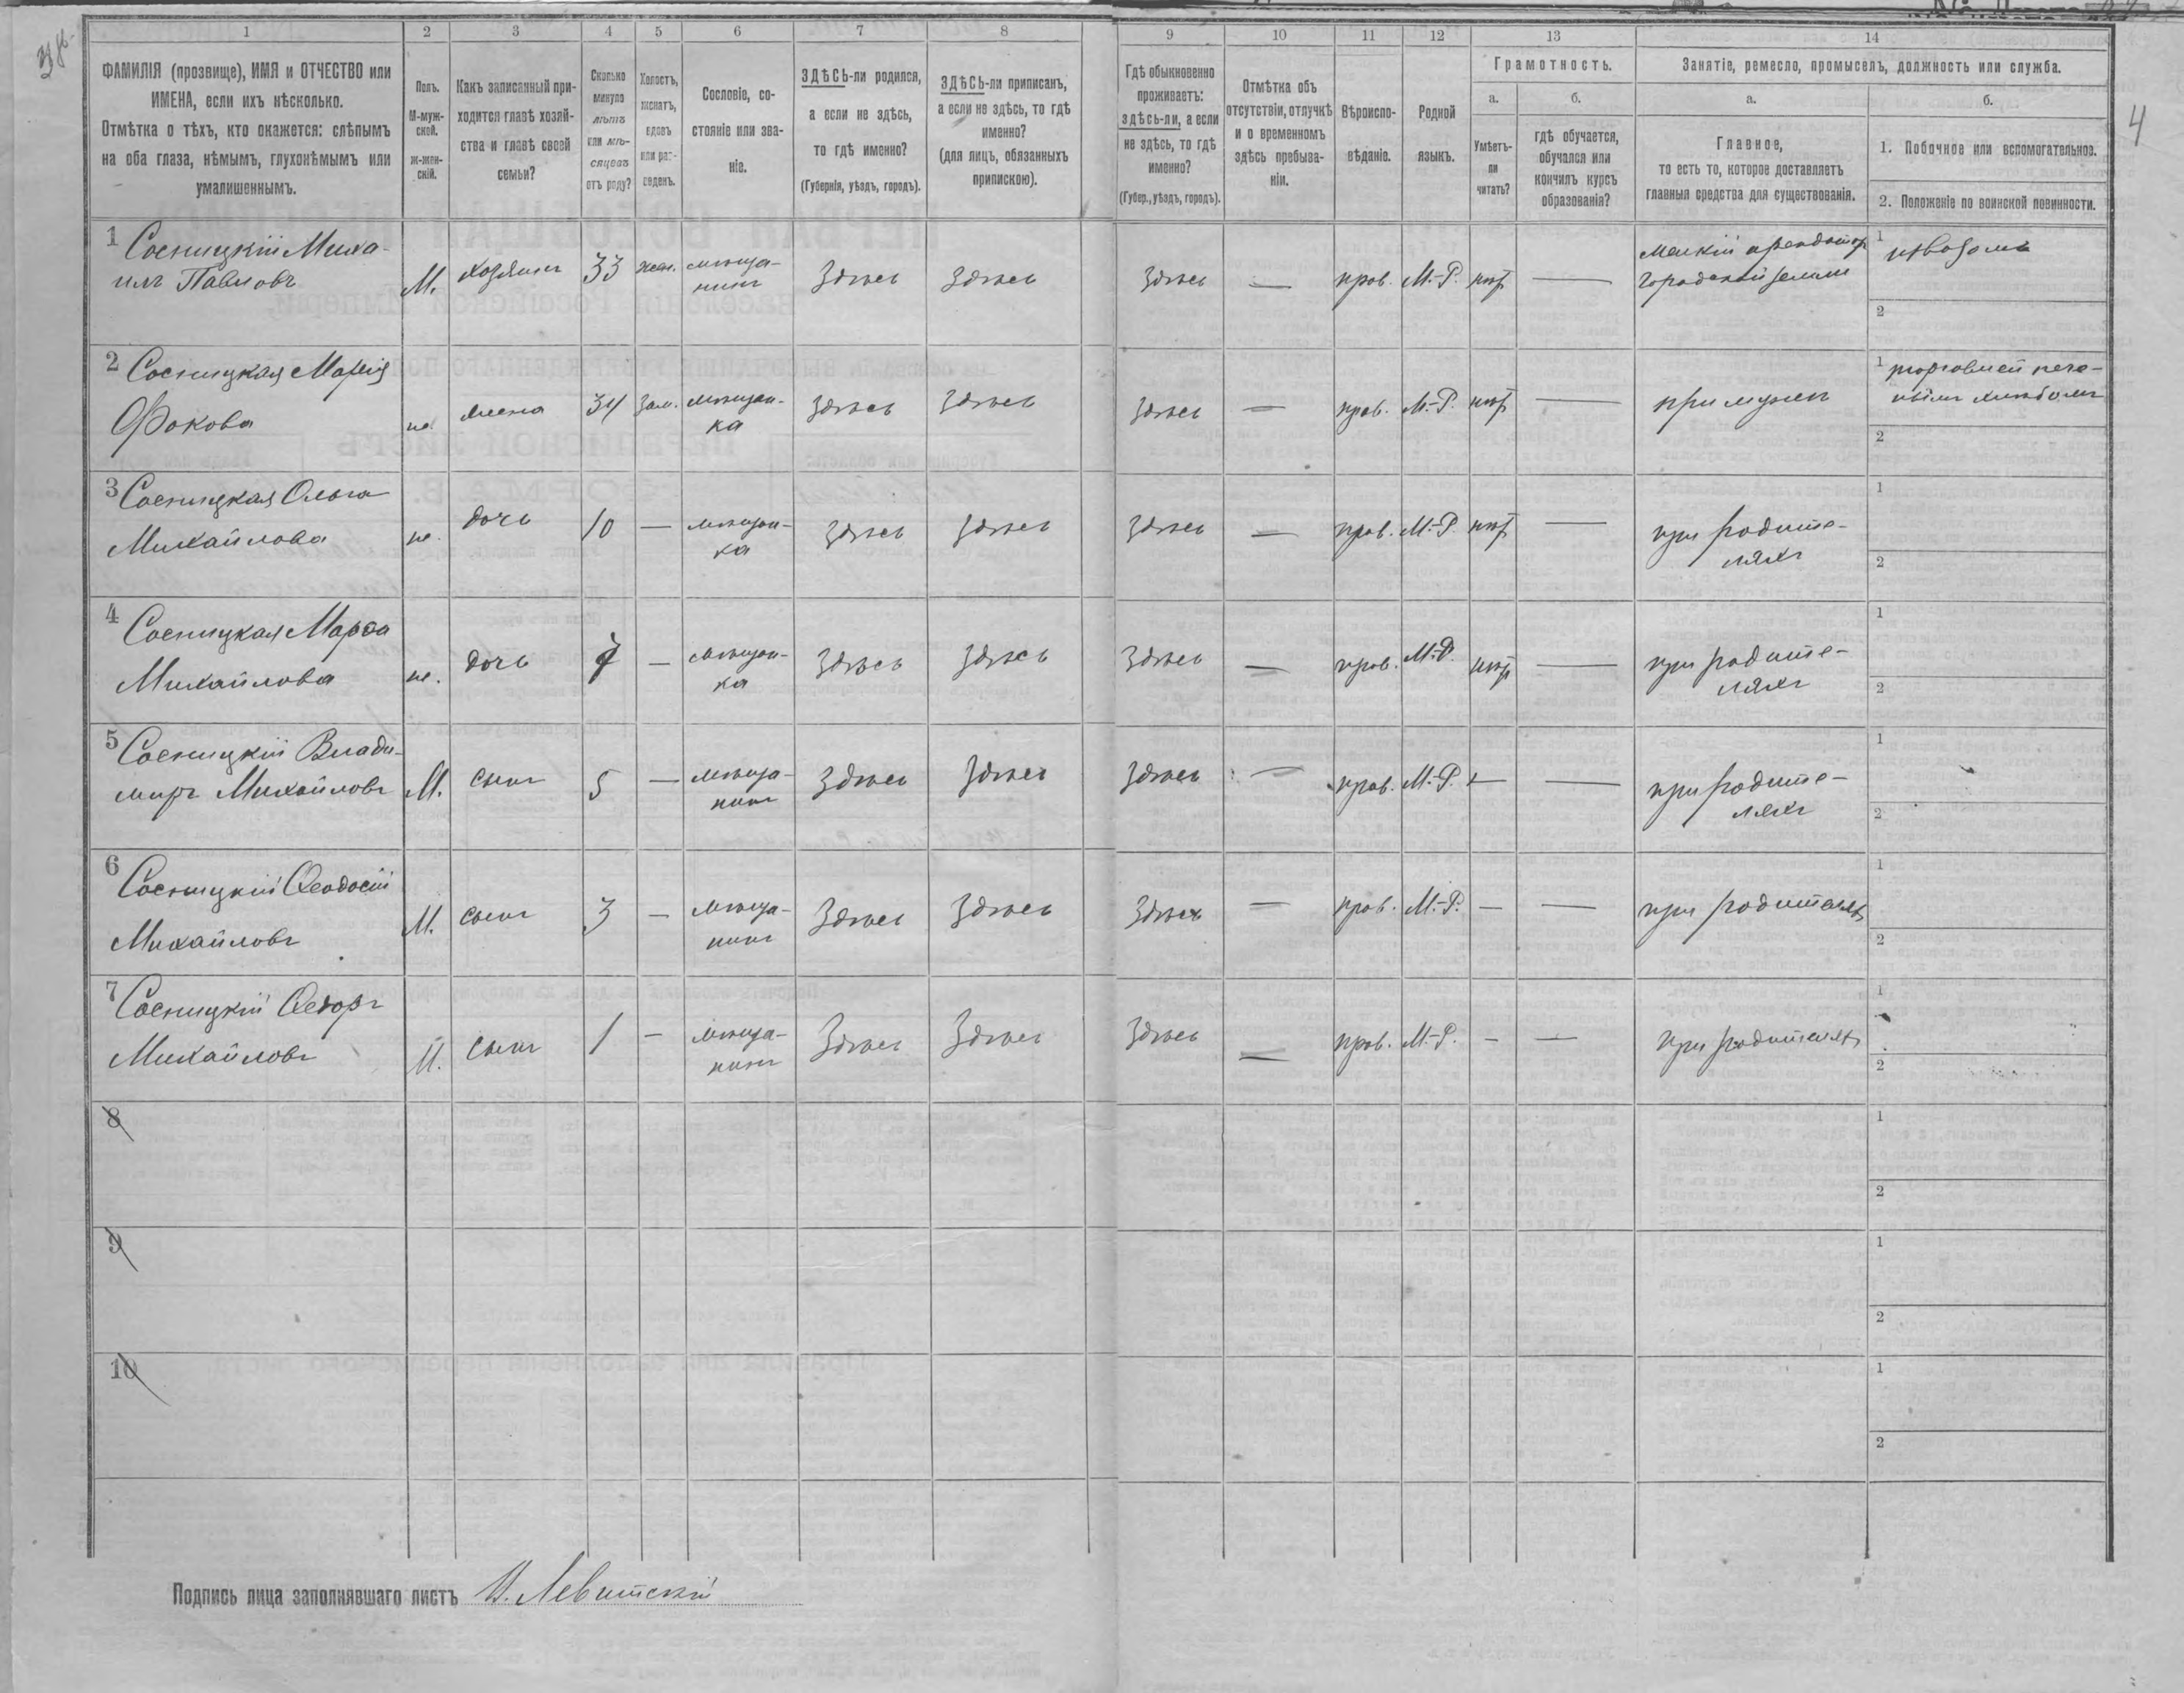 1 2 3 4 5 6 7 8 9 10 11 12 13 14
ФАМИЛІЯ (прозвище), ИМЯ и ОТЧЕСТВО или
ИМЕНА, если ихъ нѣсколько.
Отмѣтка о тѣхъ, кто окажется: слѣпымъ
на оба глаза, нѣмымъ, глухонѣмымъ или
умалишеннымъ.
Полъ.
М-муж-
ской.
Ж-жен-
скій.
Какъ записанный при-
ходится главѣ хозяй-
ства и главѣ своей
семьи?
Сколько
минуло
лѣтъ
или мѣ-
сяцевъ
отъ роду?
Холостъ,
женатъ,
вдовъ
или раз-
веденъ.
Сословіе, со-
стояніе или зва-
ніе.
ЗДѢСЬ-ли родился,
а если не здѣсь,
то гдѣ именно?
(Губернія, уѣздъ, городъ).
ЗДѢСЬ-ли приписанъ,
а если не здѣсь, то гдѣ
именно?
(для лицъ, обязанныхъ
припискою).
Гдѣ обыкновенно
проживаетъ:
здѣсь-ли, а если
не здѣсь, то гдѣ
именно?
(Губер., уѣздъ, городъ).
Отмѣтка объ
отсутствіи, отлучкѣ
и о временномъ
здѣсь пребыва-
ніи.
Вѣроиспо-
вѣданіе.
Родной
языкъ.
Грамотность.
а.
Умѣетъ-
ли
читать?
б.
гдѣ обучается,
обучался или
кончилъ курсъ
образованія?
Занятіе, ремесло, промыселъ, должность или служба.
а.
Главное,
то есть то, которое доставляетъ
главныя средства для существованія.
б.
1. Побочное или вспомогательное.
2. Положеніе по воинской повинности.
4
1 Сосницкій Миха-
илъ Павловъ
М. хозяинъ 33 жен. мѣща-
нинъ
Здѣсь Здѣсь Здѣсь — прав. М.-Р. нѣтъ —
Мелкій арендаторъ
городской земли
1 извозомъ
2
2 Сосницкая Марія
Фокова
же жена 34 зам. мѣщан-
ка
Здѣсь Здѣсь Здѣсь — прав. М.-Р. нѣтъ — при мужѣ
1 торговлей пече-
нымъ хлѣбомъ
2
3 Сосницкая Ольга
Михайлова
же. дочь 10 — мѣщан-
ка
Здѣсь Здѣсь Здѣсь — прав. М.-Р. нѣтъ — при родите-
ляхъ
1
2
4 Сосницкая Марѳа
Михайлова
же. дочь 7 — мѣщан-
ка
Здѣсь Здѣсь Здѣсь — прав. М.-Р. нѣтъ — при родите-
ляхъ
1
2
5 Сосницкій Влади-
миръ Михайловъ
М. сынъ 5 — мѣща-
нинъ
Здѣсь Здѣсь Здѣсь — прав. М.-Р. — — при родите-
ляхъ
1
2
6 Сосницкій Ѳеодосій
Михайловъ
М. сынъ 3 — мѣща-
нинъ
Здѣсь Здѣсь Здѣсь — прав. М.-Р. — — при родителяхъ
1
2
7 Сосницкій Ѳедоръ
Михайловъ
М. сынъ 1 — мѣща-
нинъ
Здѣсь Здѣсь Здѣсь — прав. М.-Р. — — при родителяхъ
1
2
8
1
2
9
1
2
10
1
2
Подпись лица заполнявшаго листъ Н. Левитскій